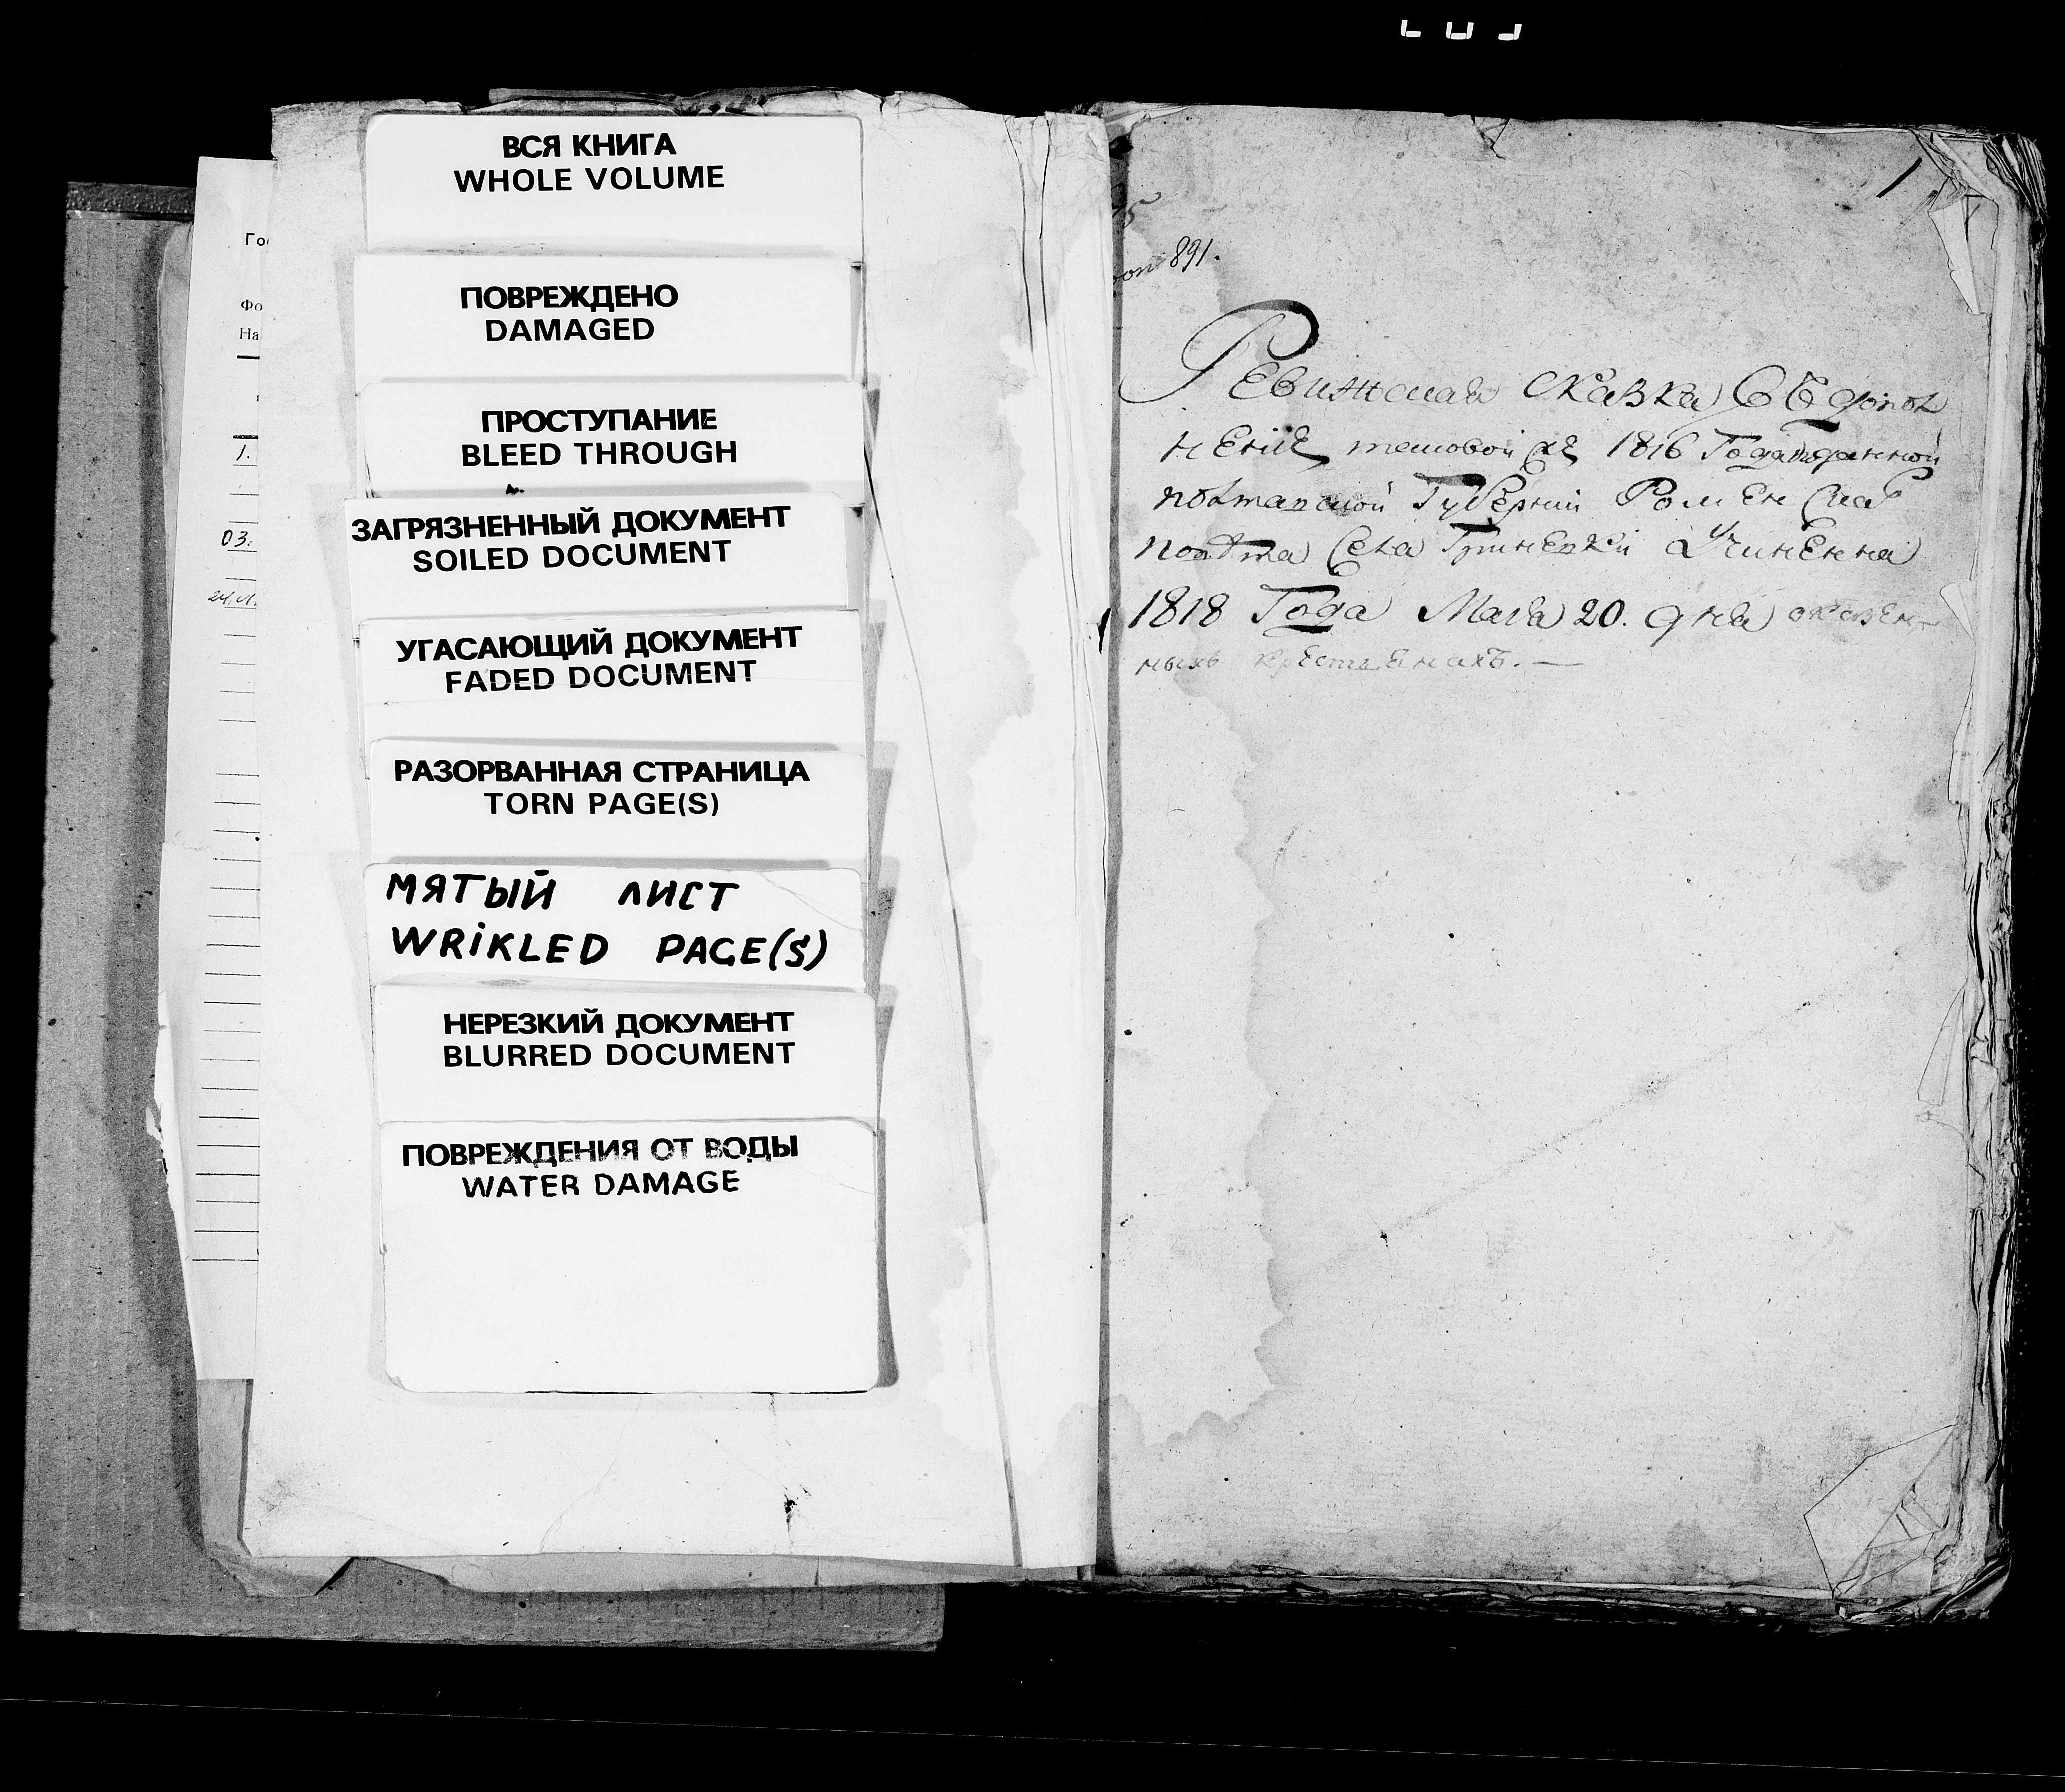 ВСЯ КНИГА
WHOLE VOLUME
ПОВРЕЖДЕНО
DAMAGED
ПРОСТУПАНИЕ
BLEED THROUGH
ЗАГРЯЗНЕННЫЙ ДОКУМЕНТ
SOILED DOCUMENT
УГАСАЮЩИЙ ДОКУМЕНТ
FADED DOCUMENT
РАЗОРВАННАЯ СТРАНИЦА
TORN PAGE(S)
МЯТЫЙ ЛИСТ
WRiKLED PAGE(S)
НЕРЕЗКИЙ ДОКУМЕНТ
BLURRED DOCUMENT
ПОВРЕЖДЕНИЯ ОТ ВОДЫ
WATER DAMAGE
Го
Фо
На
1.
03.
1
891.
Ревижская сказка въ допол
неніе 1816 Года поданной
полтавской Губерніи Ромен ска
повѣта Села Гриневки Учиненна
1818 Года Маія 20. дня о казен-
ныхъ крестьянахъ. —